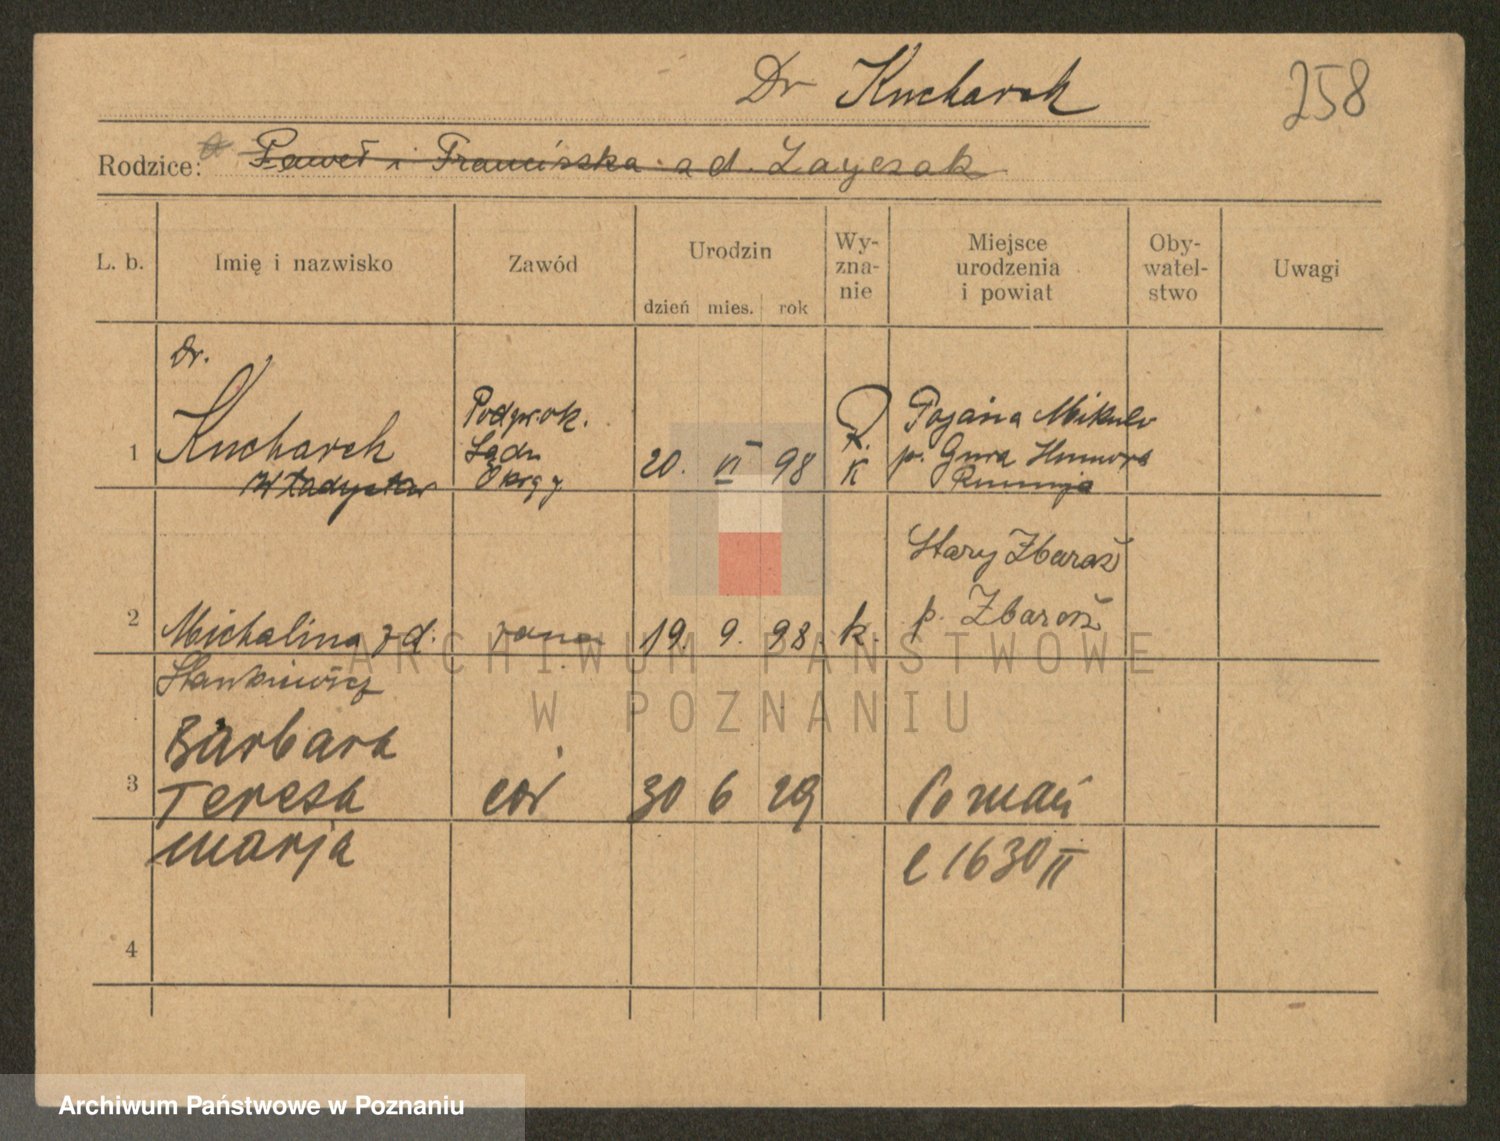 Dr Kucharek
258
Rodzice: Paweł i Franciszka z d. Zayczak
L. b.
Imię i nazwisko
Zawód
Urodzin
dzień mies. rok
Wy-
zna-
nie
Miejsce
urodzenia
i powiat
Oby-
watel-
stwo
Uwagi
1
Dr.
Kucharek
Władysław
Podprok.
Sądu
Okręg
20. VI 98
R.
K
Pojana Mikuli
p. Gura Humora
Rumunja
2
Michalina z d.
Stankiewicz
żona
19. 9. 98.
k.
Stary Zbaraż
p. Zbaraż
3
Barbara
Teresa
Marja
30 6 29
Poznań
1630 II
4
ARCHIWUM PAŃSTWOWE
W POZNANIU
Archiwum Państwowe w Poznaniu